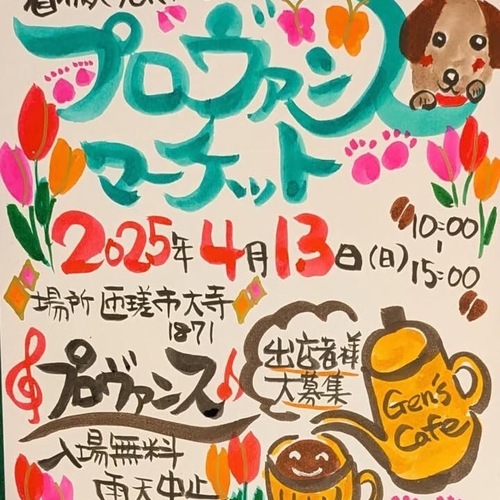 プロヴァンス
マーチット
2025年4月13日(日)
10:00
15:00
場所 匝瑳市大寺
1871
プロヴァンス
出店者様
大募集
Gen's
Cafe
入場無料
雨天中止